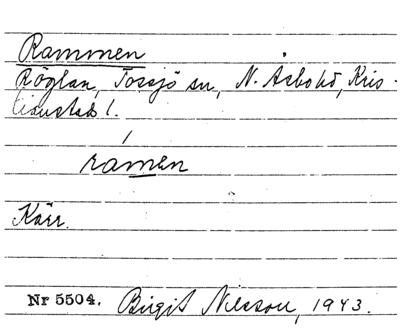 Rammen
Röglan, Tossjö sn, N. Åsbo hd, Kris-
tianstads l.
rámen
Kärr.
Nr 5504. Birgit Nilsson, 1943.